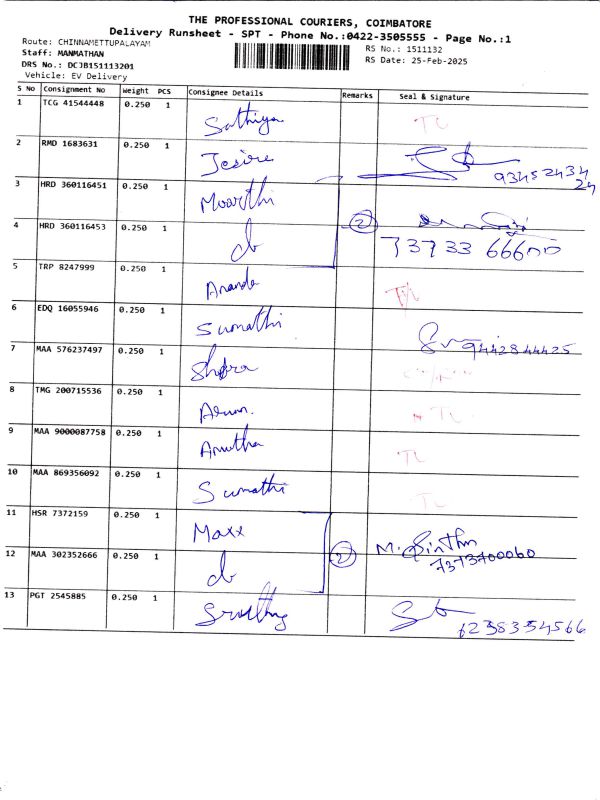 THE PROFESSIONAL COURIERS, COIMBATORE
Delivery Runsheet - SPT - Phone No.:0422-3505555 - Page No.:1
Route: CHINNAMETTUPALAYAM
Staff: MANMATHAN
DRS No.: DCJB151113201
Vehicle: EV Delivery
RS No.: 1511132
RS Date: 25-Feb-2025
S No Consignment No Weight PCS Consignee Details Remarks Seal & Signature
1 TCG 41544448 0.250 1 Sathiya TL
2 RMD 1683631 0.250 1 93452434
24
3 HRD 360116451 0.250 1 Moorthi
4 HRD 360116453 0.250 1 do 2 73733 66600
5 TRP 8247999 0.250 1 Ananda TL
6 EDQ 16055946 0.250 1 Sumathi 9442844425
7 MAA 576237497 0.250 1
8 TMG 200715536 0.250 1 Arun. TL
9 MAA 9000087758 0.250 1 Anutha TL
10 MAA 869356092 0.250 1 Sumathi TL
11 HSR 7372159 0.250 1 Maxx
12 MAA 302352666 0.250 1 do 2 M. 7373700060
13 PGT 2545885 0.250 1 6238354566